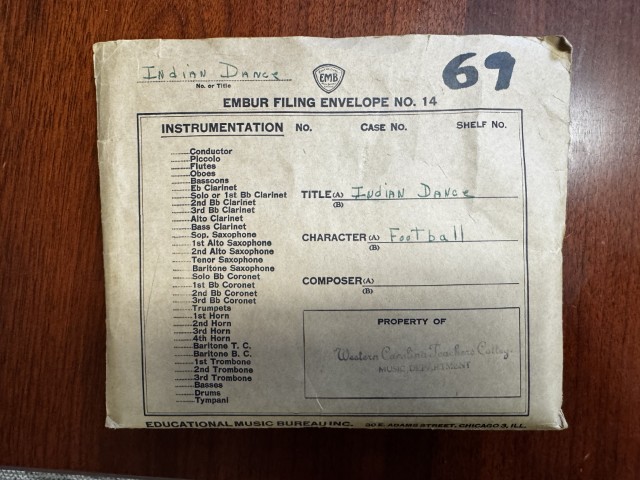 Indian Dance
No. or Title
EMB
69
EMBUR FILING ENVELOPE NO. 14
INSTRUMENTATION NO. CASE No. SHELF No.
Conductor
Piccolo
Flutes
Oboes
Bassoons
Eb Clarinet
Solo or 1st Bb Clarinet
2nd Bb Clarinet
3rd Bb Clarinet
Alto Clarinet
Bass Clarinet
Sop. Saxophone
1st Alto Saxophone
2nd Alto Saxophone
Tenor Saxophone
Baritone Saxophone
Solo Bb Coronet
1st Bb Coronet
2nd Bb Coronet
3rd Bb Coronet
Trumpets
1st Horn
2nd Horn
3rd Horn
4th Horn
Baritone T. C.
Baritone B. C.
1st Trombone
2nd Trombone
3rd Trombone
Basses
Drums
Tympani
TITLE (A) Indian Dance
(B)
CHARACTER (A) Football
(B)
COMPOSER (A)
(B)
PROPERTY OF
Western Carolina Teachers College
MUSIC DEPARTMENT
EDUCATIONAL MUSIC BUREAU INC. 30 E. ADAMS STREET, CHICAGO 3, ILL.